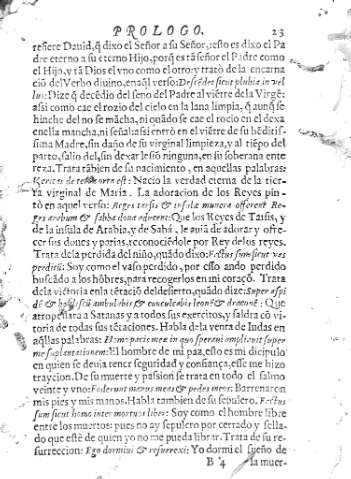 PROLOGO. 23
refiere Dauid, q̃ dixo el Señor a su Señor, esto es dixo el Pa
dre eterno a su eterno Hijo, porq̃ es tã señor el Padre como
el Hijo, y tã Dios el vno como el otro: y tratò de la encarna
ciõ del Verbo diuino, en aq̃l verso: Descẽdet sicut pluuia in vel
lus: Dize q̃ decẽdio del seno del Padre al viẽtre de la Virgẽ:
assi como cae el rozio del cielo en la lana limpia, q̃ aunq̃ se
hinche del no se mãcha, ni quãdo se cae el rocio en el dexa
en ella mancha, ni señal: assi entrò en el viẽtre de su bẽditis-
sima Madre, sin daño de su virginal limpieza, y al tiẽpo del
parto, salio del, sin dexar lesiõ ninguna, en su soberana ente
reza. Trata tãbien de su nacimiento, en aquellas palabras:
Veritas de terra orta est: Nacio la verdad eterna de la tie-
rra virginal de Maria. La adoracion de los Reyes pin-
tò en aquel verso: Reges tarsis & insulæ munera offerent Re-
ges arabum & sabba dona aducent: Que los Reyes de Tarsis, y
de la insula de Arabia, y de Sabà, le auiã de adorar y ofre-
cer sus dones y parias, reconociẽdole por Rey de los reyes.
Trata de la perdida del niño, quãdo dixo: Factus sum sicut vas
perditũ: Soy como el vaso perdido, por esso ando perdido
buscãdo a los hõbres, para recogerlos en mi coraçõ. Trata
de la victoria en la tẽtaciõ del desierto, quãdo dize: Super aspi
dẽ & basiliscũ ambulabis & conculcabis leonẽ & draconẽ: Que
atropellara a Satanas y a todos sus exercitos, y saldra cõ vi
toria de todas sus tẽtaciones. Habla de la venta de Iudas en
aq̃llas palabras: Homo pacis meæ in quo speraui ampliauit super
me suplantationem: El hombre de mi paz, esto es mi dicipulo
en quien se deuia tener seguridad y confiança, esse me hizo
trayciõn. De su muerte y passion se trata en todo el salmo
veinte y vno: Foderunt manus meas & pedes meos: Barrenaron
mis pies y mis manos. Habla tambien de su sepulcro. Factus
sum sicut homo inter mortuos liber: Soy como el hõmbre libre
entre los muertos: pues no ay sepulcro por cerrado y sella-
do que estè de quien yo no me pueda librar. Trata de su re-
surreccion: Ego dormiui & resurrexi: Yo dormi el sueño de
B 4 la muer-